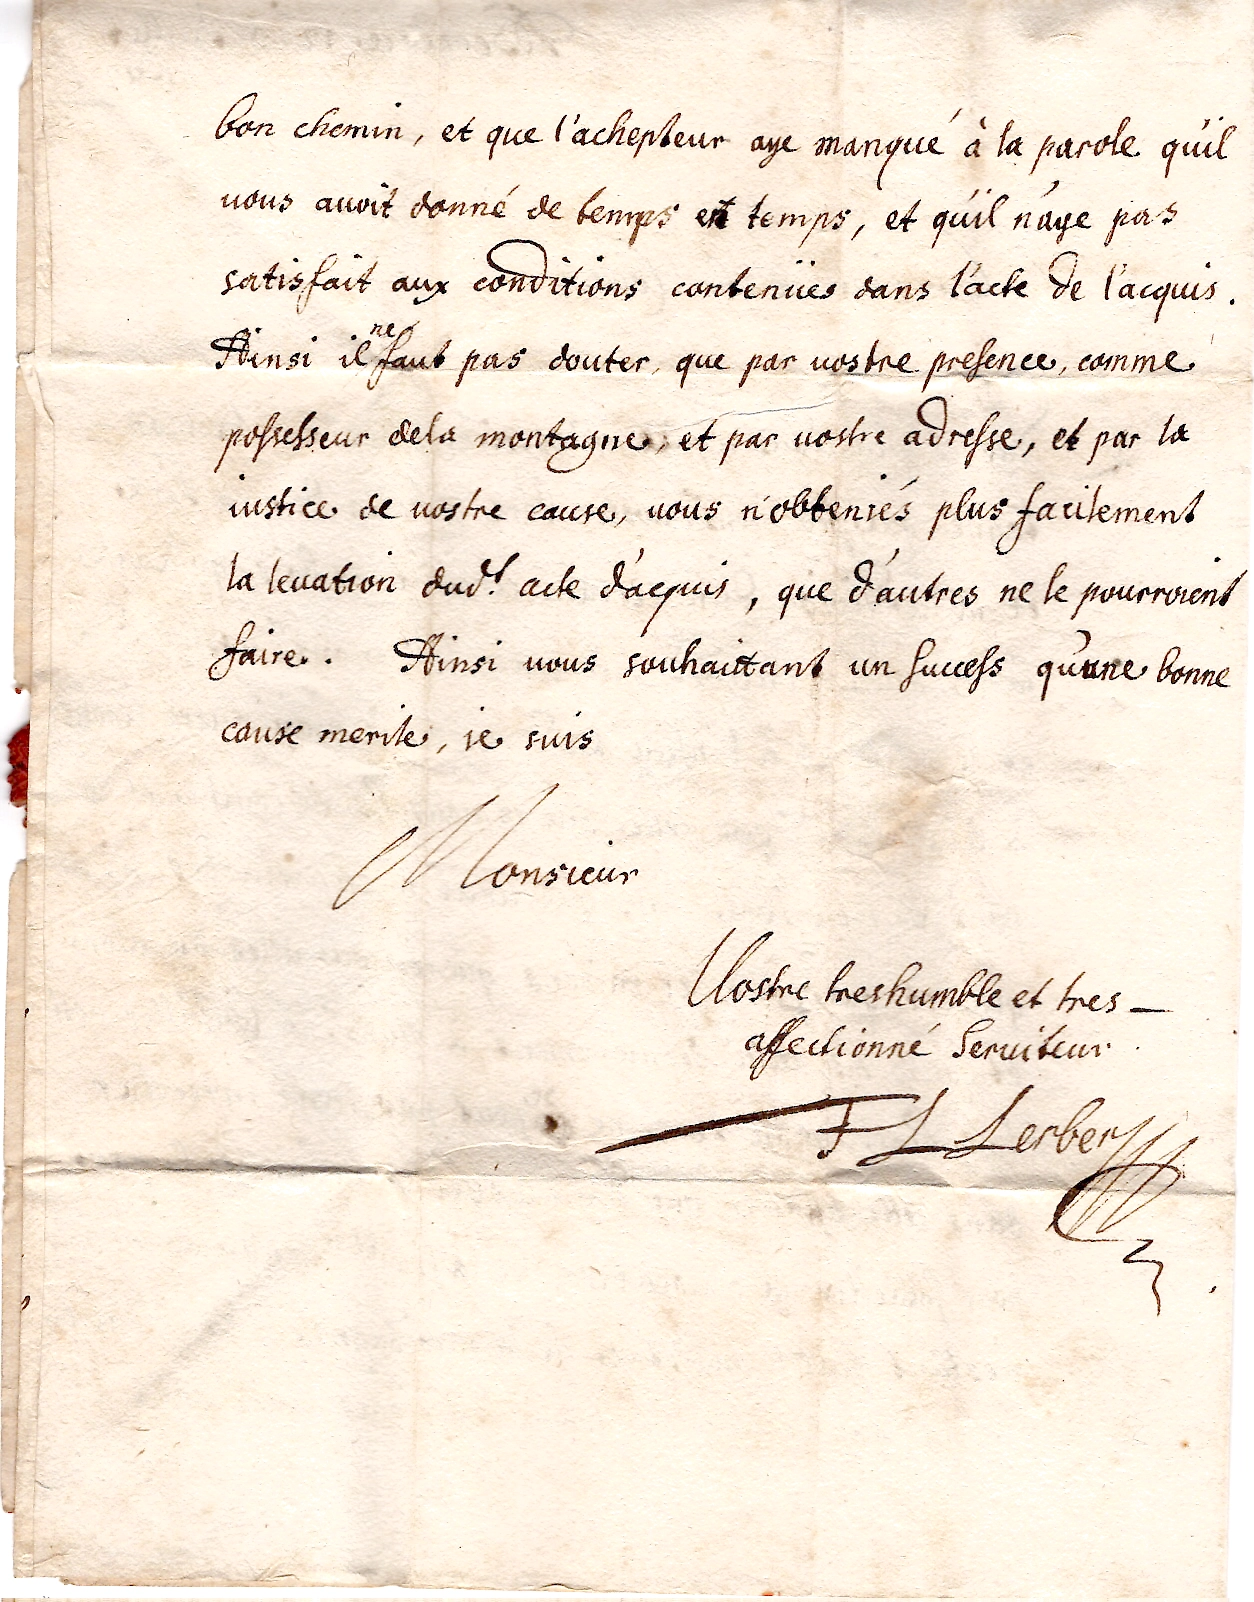 bon chemin, et que l'achepteur aye manqué à la parole qu'il
vous avoit donné de temps en temps, et qu'il n'aye pas
satisfait aux conditions contenües dans l'acte de l'acquis.
Ainsi il ne faut pas douter, que par vostre presence, comme
possesseur dela montagne, et par vostre adresse, et par la
iustice de vostre cause, vous n'obteniés plus facilement
la levation dud.t acte d'acquis, que d'autres ne le pourroient
faire. Ainsi vous souhaittant un success qu'une bonne
cause merite, ie suis
Monsieur
Vostre treshumble et tres-
affectionné Serviteur
F L Lerber